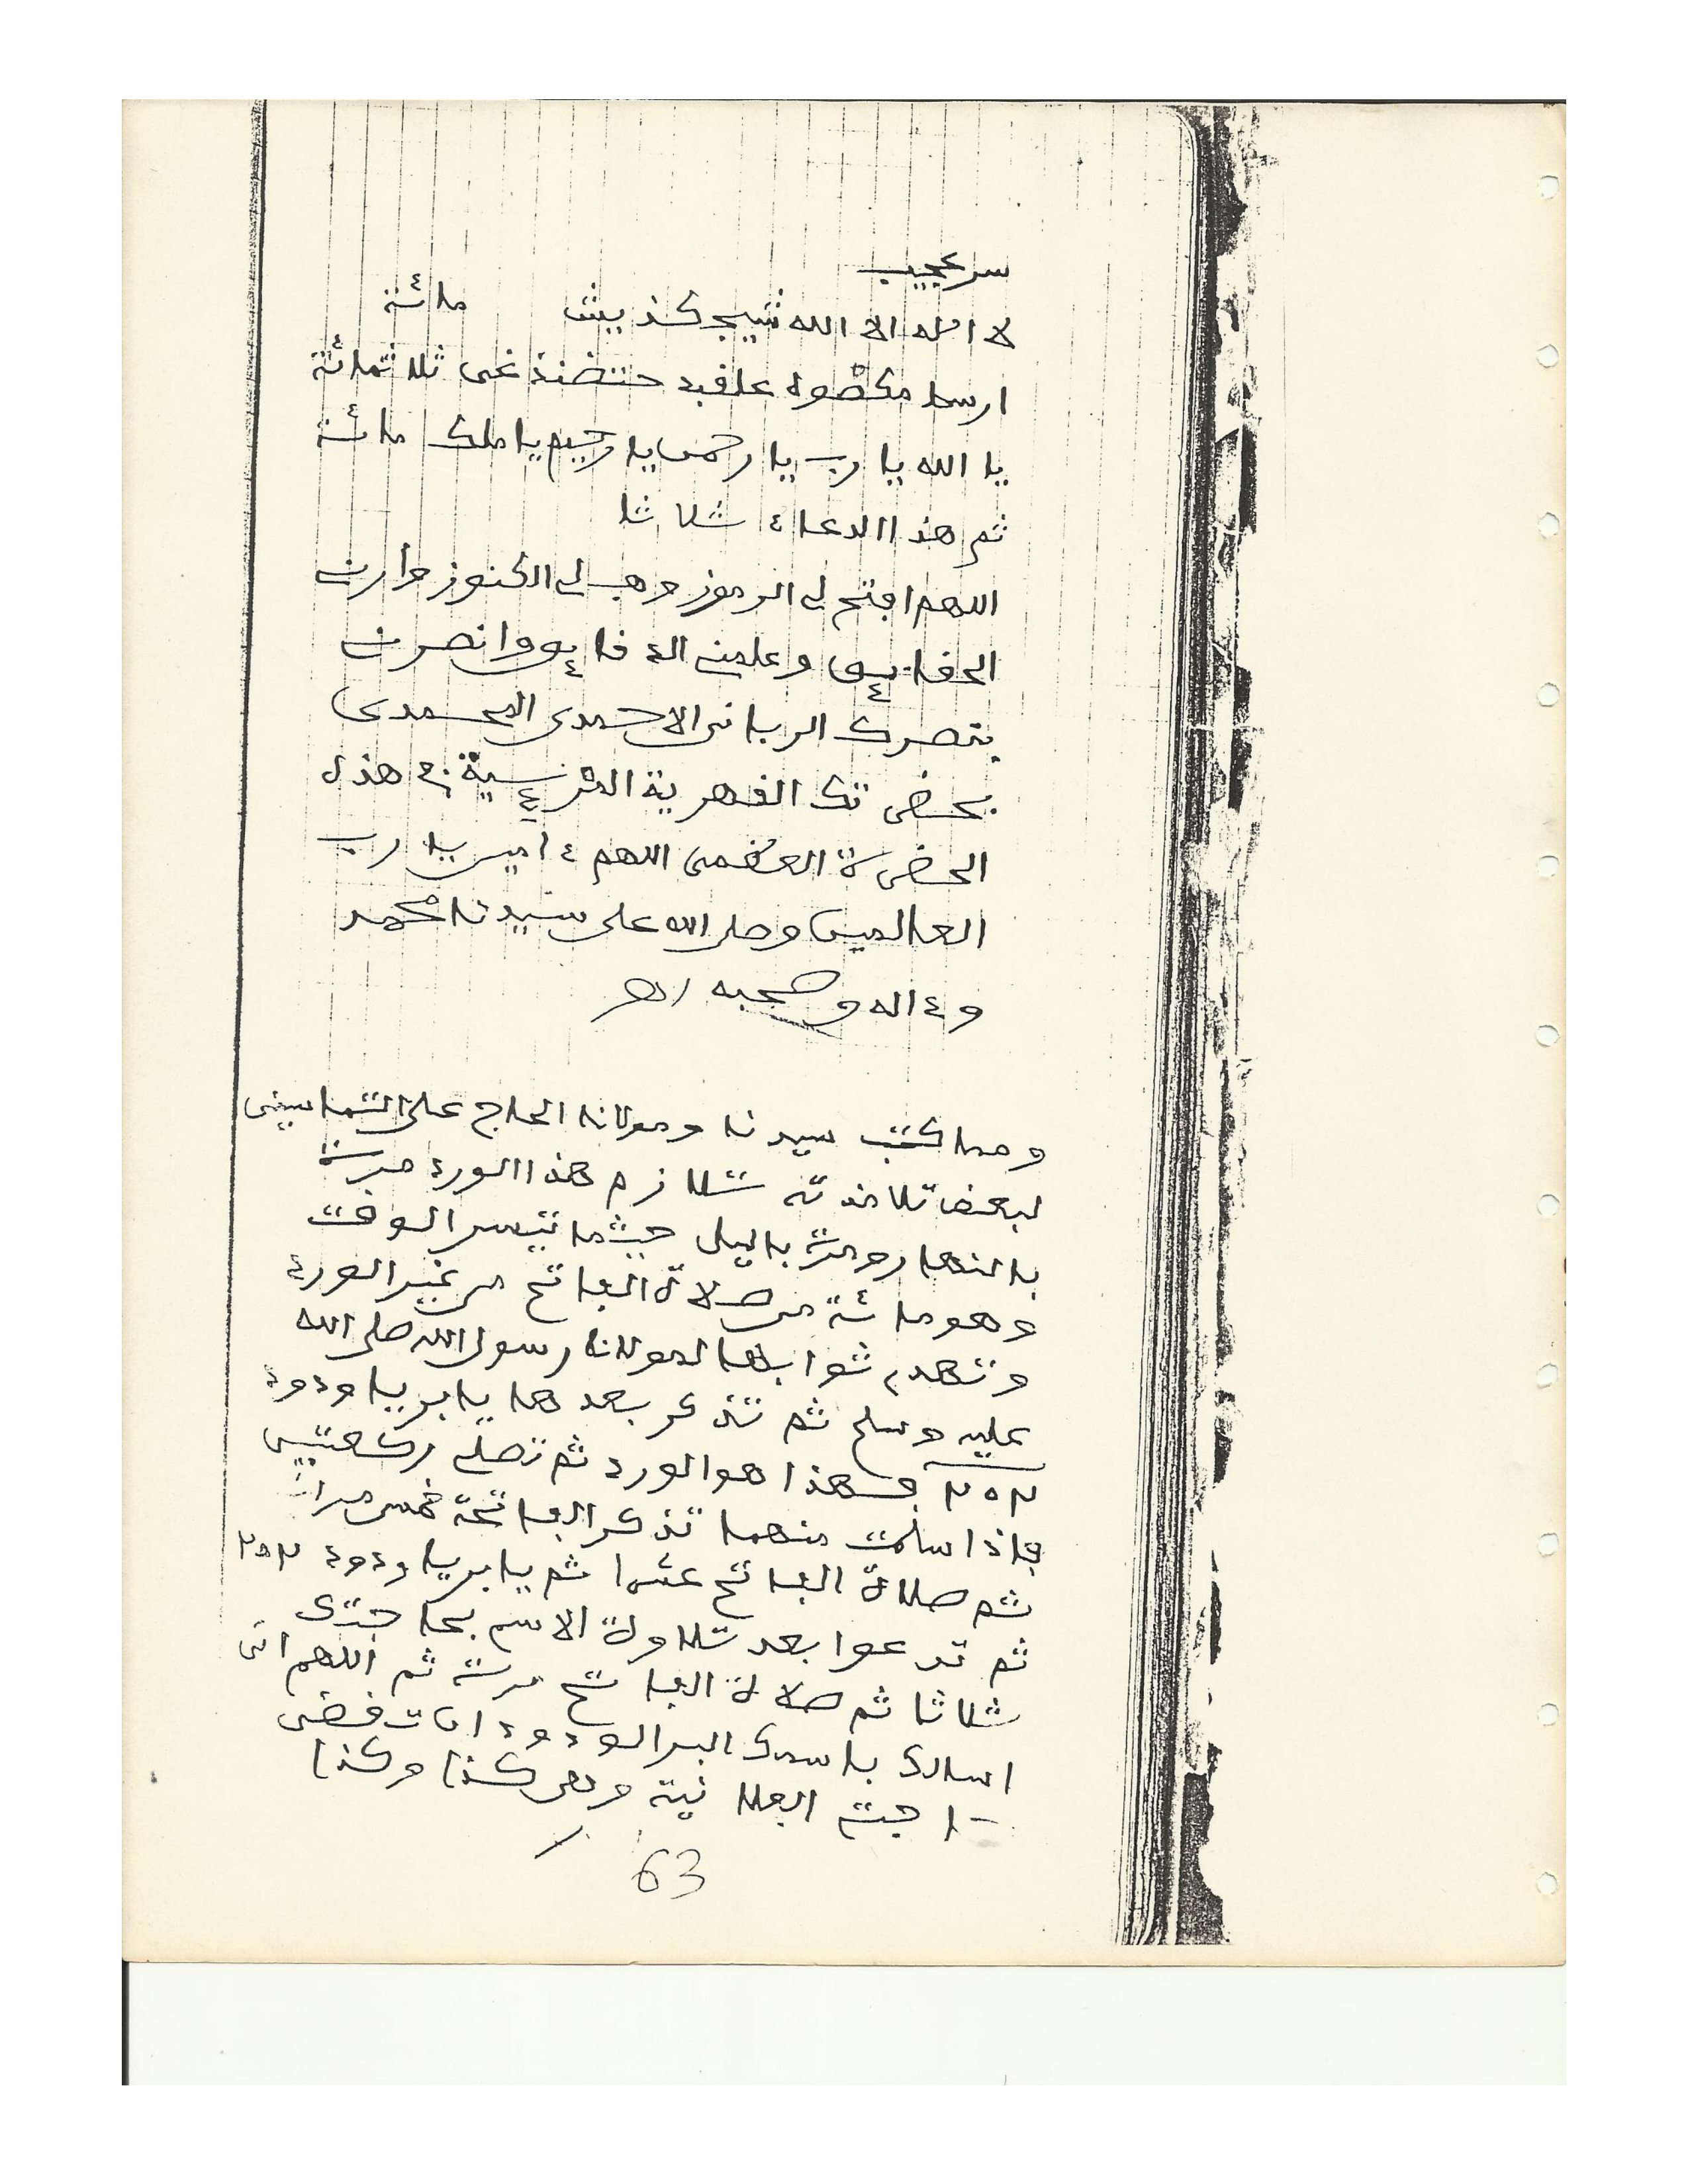 سر عجيب
لا اله الا الله مائة
ثلاثمائة
يا الله يا رب يا رحمن يا رحيم يا ملك مائة
ثم هذا الدعاء ثلاثا
اللهم افتح لي الرموز وهب لي الكنوز وأرني
الحقايق وعلمني الدقايق وانصرني
بنصرك الرباني الاحمدي المحمدي
بحضرتك القهرية هذه
الحضرة العظمى اللهم ءامين يا رب
العالمين وصلى الله على سيدنا محمد
وءاله وصحبه اهـ
ومما كتب سيدنا ومولانا الحاج على التماسيني
لبعض تلامذته تلازم هذا الورد مرة
بالنهار ومرة باليل حيثما تيسر الوقت
وهو مائة من صلاة الفاتح من غير الورد
وتهدي ثوابها لمولانا رسول الله صلى الله
عليه وسلم ثم تذكر بعدها يا بر يا ودود
٢٥٢ فهذا هو الورد ثم تصلي ركعتين
فإذا سلمت منهما تذكر الفاتحة خمس مرات
ثم صلاة الفاتح عشرا ثم يا بر يا ودود ٢٥٢
ثم تدعوا بعد تلاوة الاسم بحاجتك
ثلاثا ثم صلاة الفاتح مرة ثم اللهم اني
اسالك باسمك البر الودود ان تقضى
حاجتي الفلانية وهى كذا وكذا
63